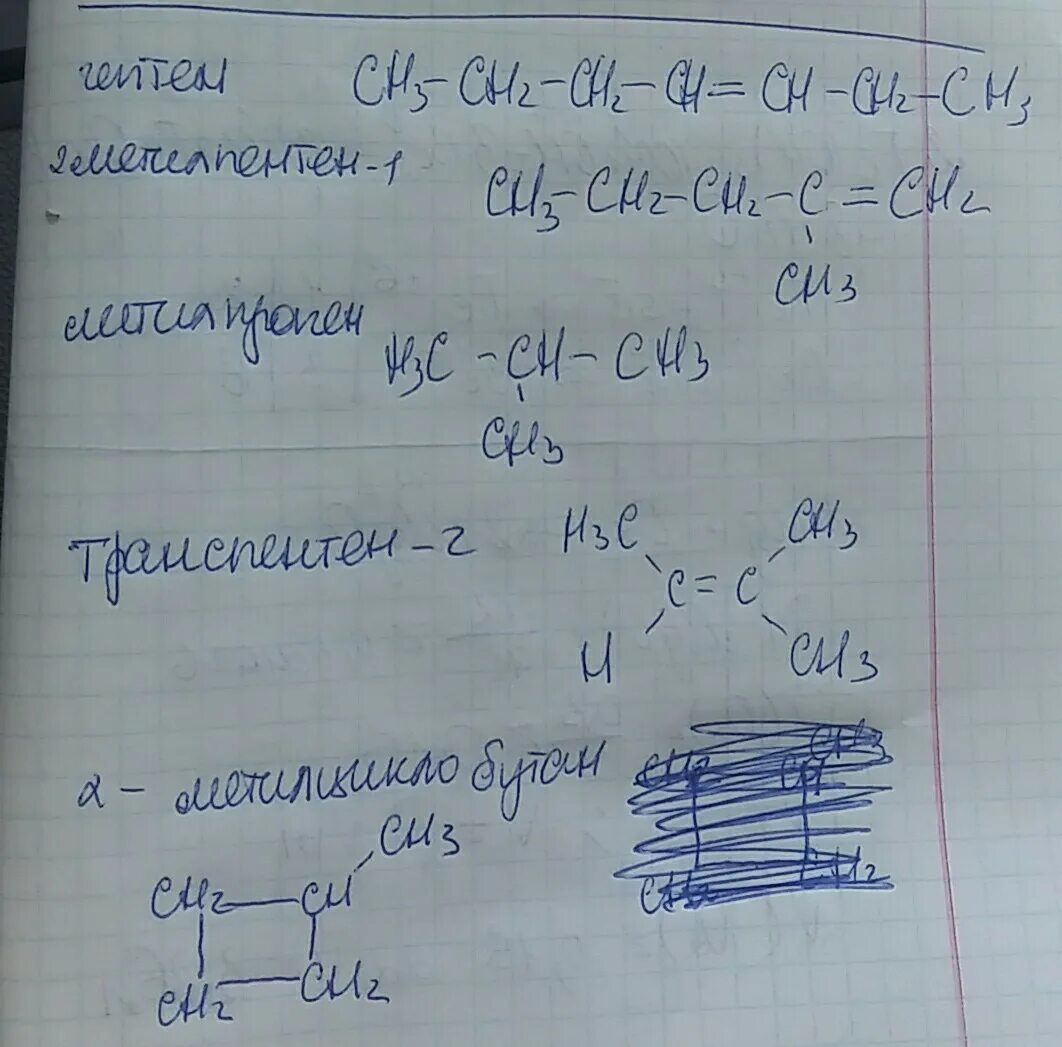 гептен CH3-CH2-CH2-CH=CH-CH2-CH3
2метилпентен-1
CH3-CH2-CH2-C=CH2
CH3
метилпропен
H3C-CH-CH3
CH3
Транспентен-2
H3C CH3
C=C
H CH3
2- метилциклобутан
CH3
CH2-CH
CH2-CH2